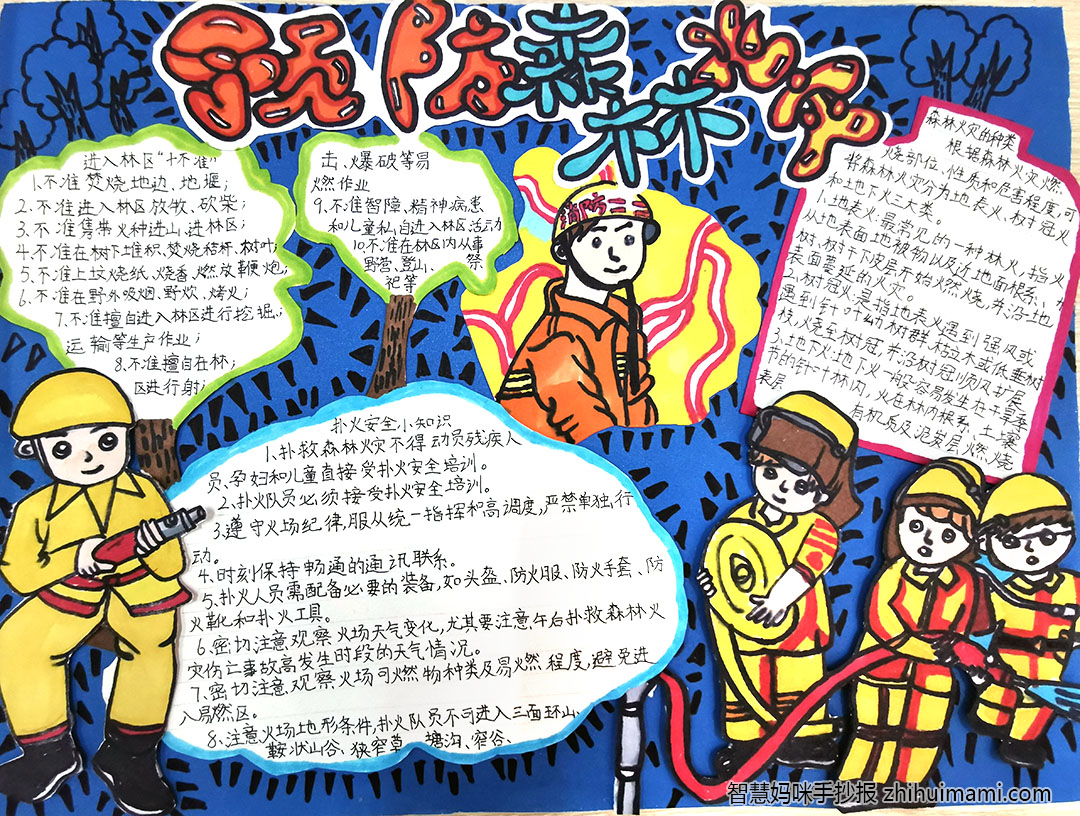 预防森林火灾
进入林区"十不准"
1.不准焚烧地边、地堰;
2.不准进入林区放牧、砍柴;
3.不准携带火种进山、进林区;
4.不准在树下堆积、焚烧秸秆、树叶;
5.不准上坟烧纸、烧香、燃放鞭炮;
6.不准在野外吸烟、野炊、烤火;
7.不准擅自进入林区进行挖掘、
运输等生产作业;
8.不准擅自在林
区进行射
击、爆破等易
燃作业
9.不准智障、精神病患
和儿童私自进入林区活动
10.不准在林区内从事
野营、登山、祭
祀等
消防
森林火灾的种类
根据森林火灾燃
烧部位、性质和危害程度,可
将森林火灾分为地表火、树冠火
和地下火三大类。
1.地表火最常见的一种林火,指火
从地表面地被物以及近地面根系、幼
树、树干下皮层开始燃烧,并沿地
表面蔓延的火灾。
2.树冠火是指地表火遇到强风或
遇到针叶幼树群、枯立木或低垂树
枝,火烧至树冠,并沿树冠顺风扩展
3.地下火:地下火一般容易发生在干旱季
节的针叶林内,火在林内根系、土壤
表层有机质及泥炭层燃烧
扑火安全小知识
1.扑救森林火灾不得动员残疾人
员、孕妇和儿童直接受扑火安全培训。
2.扑火队员必须接受扑火安全培训。
3.遵守火场纪律,服从统一指挥和高调度,严禁单独行
动。
4.时刻保持畅通的通讯联系。
5.扑火人员需配备必要的装备,如头盔、防火服、防火手套、防
火靴和扑火工具。
6.密切注意观察火场天气变化,尤其要注意午后扑救森林火
灾伤亡事故高发生时段的天气情况。
7.密切注意观察火场可燃物种类及易燃程度,避免进
入易燃区。
8.注意火场地形条件,扑火队员不可进入三面环山、
鞍状山谷、狭窄草塘沟、窄谷、
智慧妈咪手抄报 zhihuimami.com